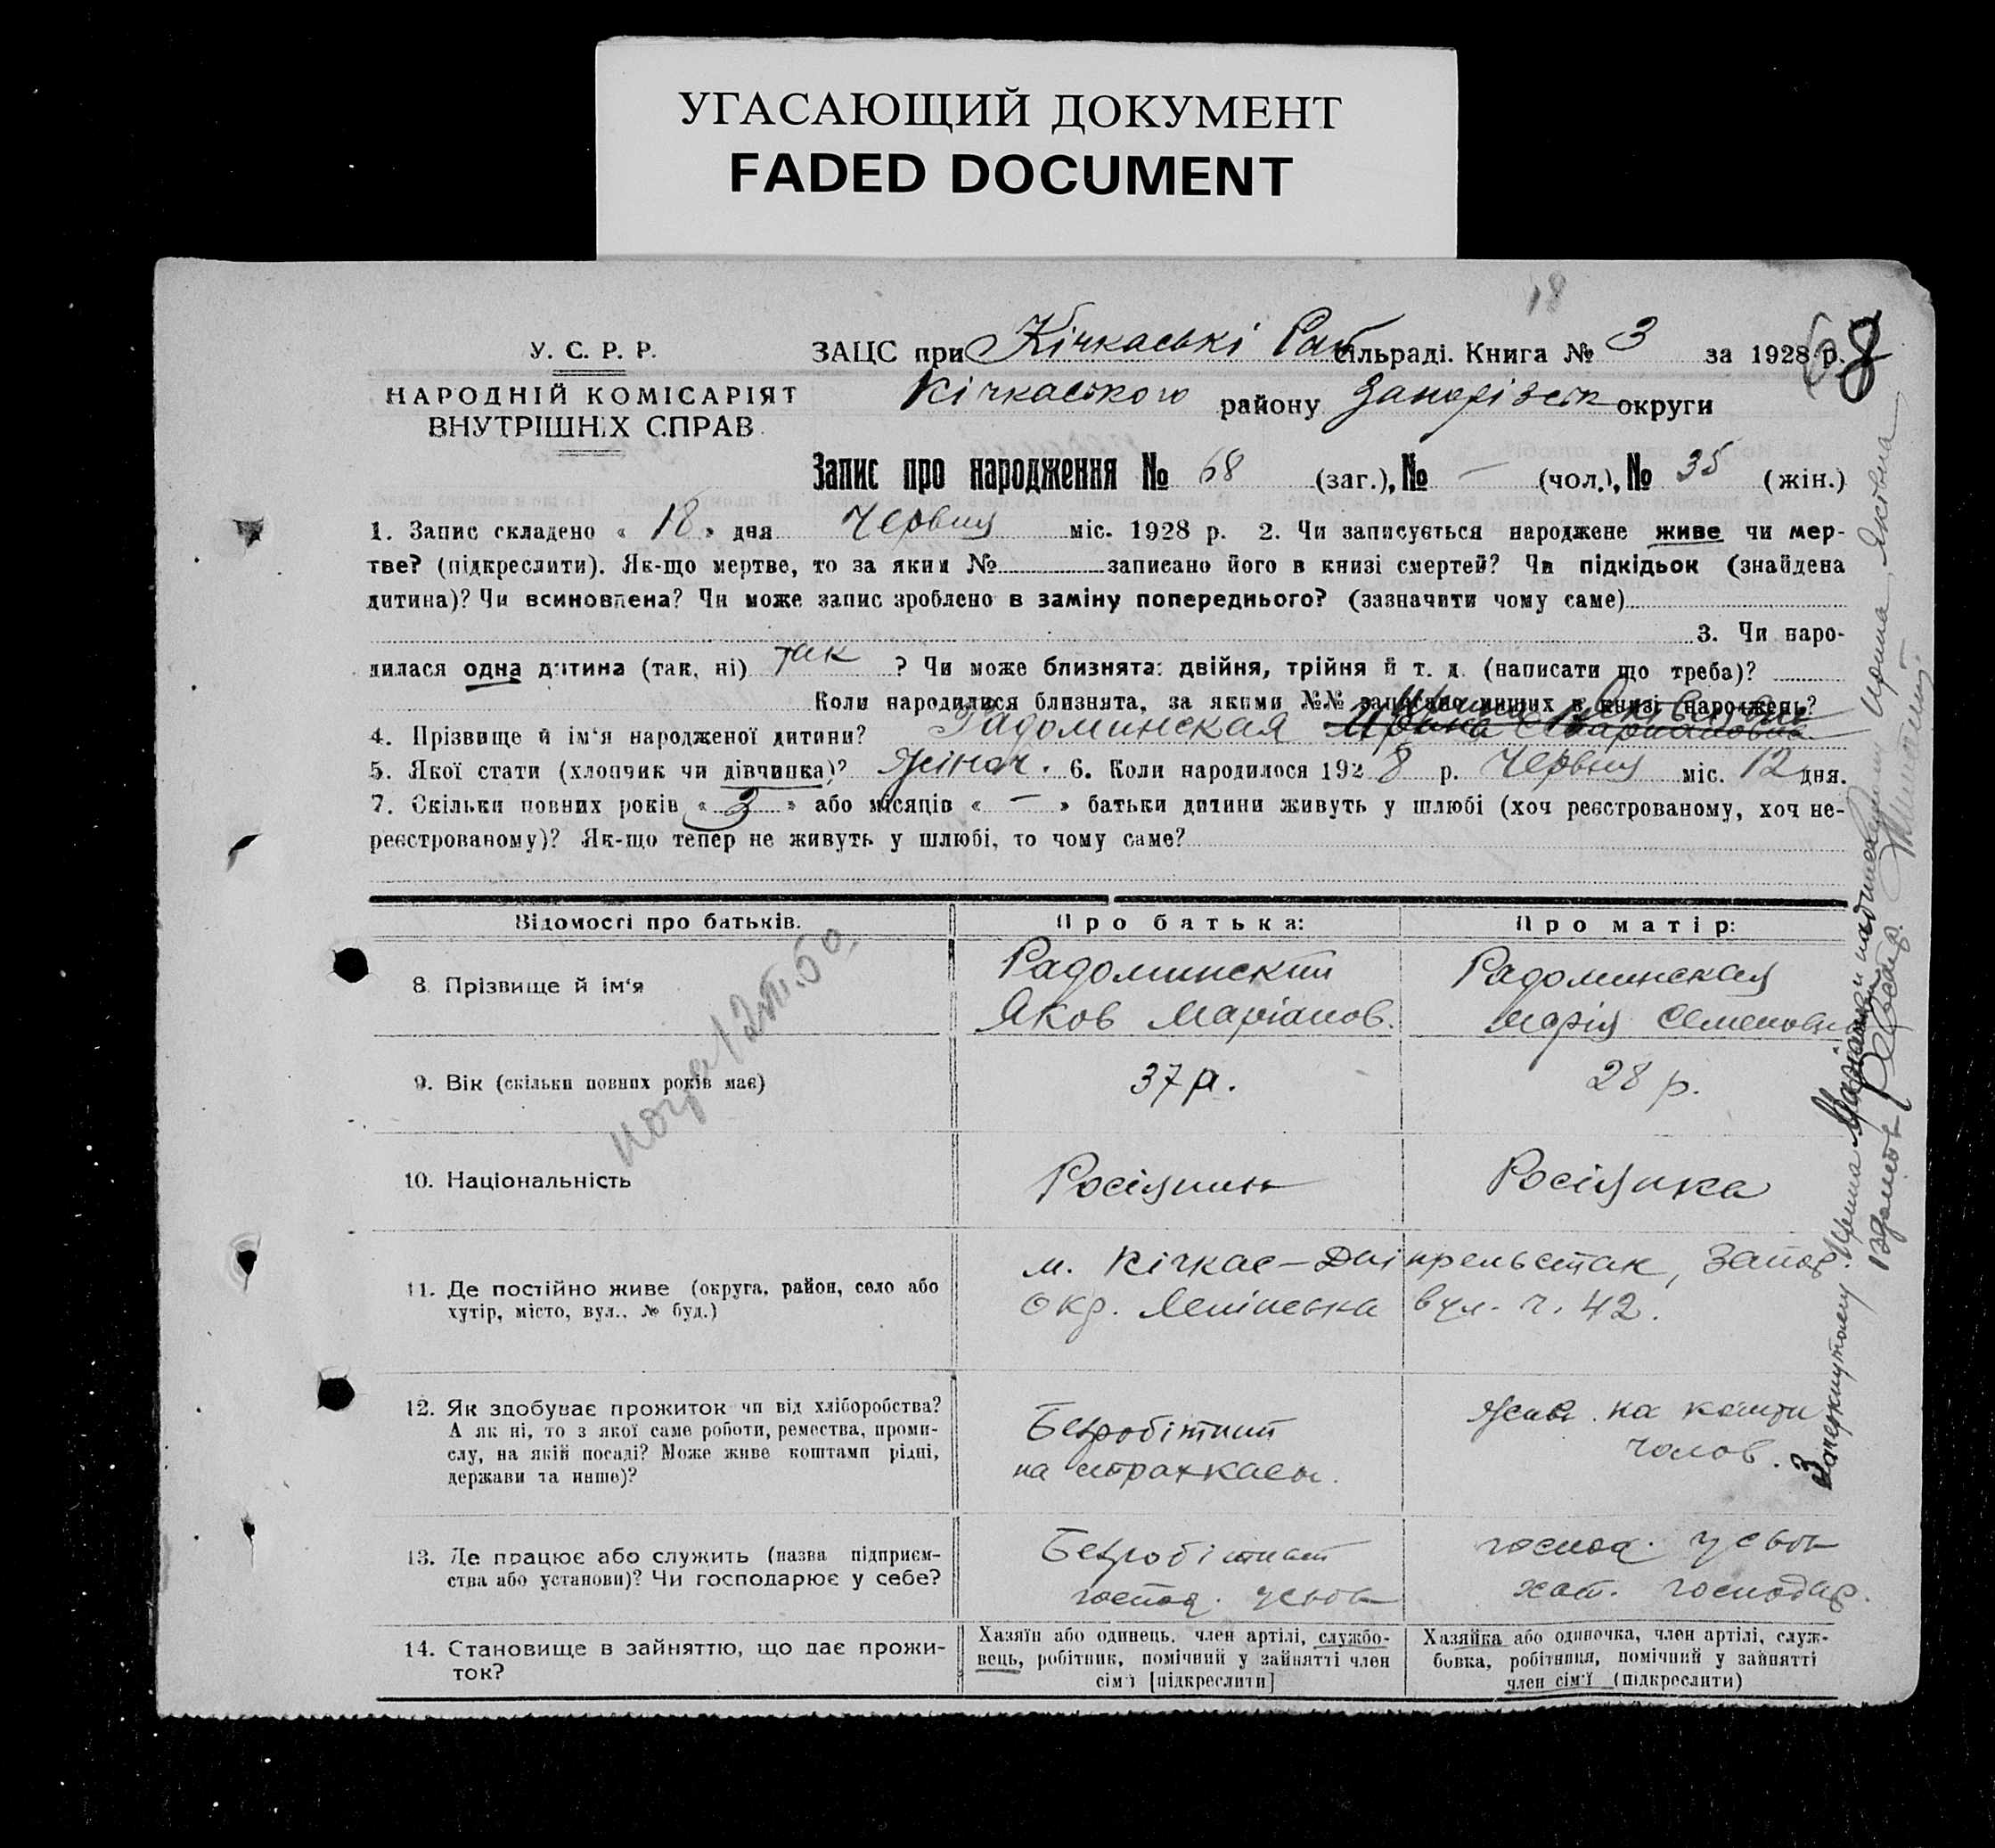 УГАСАЮЩИЙ ДОКУМЕНТ
FADED DOCUMENT
18
68
У. С. Р. Р.
НАРОДНІЙ КОМІСАРІЯТ
ВНУТРІШНІХ СПРАВ
ЗАЦС при Кічкаські Раб сільраді. Книга № 3 за 1928 р.
Кічкаського району Запорізьк округи
Запис про народження № 68 (заг.), № — (чол.), № 35 (жін.)
1. Запис складено « 18 » дня Червня міс. 1928 р. 2. Чи записується народжене живе чи мер-
тве? (підкреслити). Як-що мертве, то за яким № записано його в книзі смертей? Чи підкідьок (знайдена
дитина)? Чи всиновлена? Чи може запис зроблено в заміну попереднього? (зазначити чому саме)
3. Чи наро-
дилася одна дитина (так, ні) так ? Чи може близнята: двійня, трійня й т. д. (написати що треба)?
Коли народилися близнята, за якими №№ записано инших в книзі народжень?
Ирина Яковлевна
4. Прізвище й ім'я народженої дитини? Радоминская Ирина Мариановна
5. Якої стати (хлопчик чи дівчинка)? Жіноч. 6. Коли народилося 1928 р. Червня міс. 12 дня.
7. Скільки повних років « 2 » або місяців « — » батьки дитини живуть у шлюбі (хоч реєстрованому, хоч не-
реєстрованому)? Як-що тепер не живуть у шлюбі, то чому саме?
Відомості про батьків.
Про батька:
Про матір:
8. Прізвище й ім'я
Радоминский
Яков Маріанов.
Радоминская
Марія Семеновна
9. Вік (скільки повних років має)
37 р.
28 р.
10. Національність
Росіянин
Росіянка
11. Де постійно живе (округа, район, село або
хутір, місто, вул., № буд.)
м. Кічкас – Дніпрельстан, Запор.
Окр. Ленінська вул. ч. 42.
12. Як здобуває прожиток чи від хліборобства?
А як ні, то з якої саме роботи, ремества, проми-
слу, на якій посаді? Може живе коштами рідні,
держави та инше)?
Безробітний
на страхкасы.
живе на кошти
чолов.
13. Де працює або служить (назва підприєм-
ства або установи)? Чи господарює у себе?
Безробітний
господ. у себе
господ. у себе
хат. господар.
14. Становище в зайняттю, що дає прожи-
ток?
Хазяїн або одинець, член артілі, службо-
вець, робітник, помічний у зайнятті член
сім'ї [підкреслити]
Хазяйка або одиночка, член артілі, служ-
бовка, робітниця, помічний у зайнятті
член сім'ї (підкреслити)
Зачеркнутому Ирина Мариан надписанному Ирина Яковна